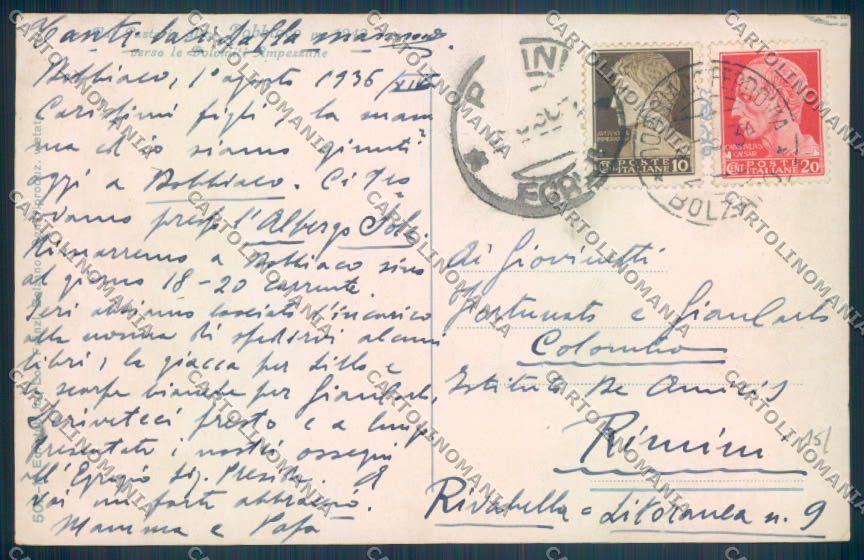 Tanti baci dalla mamma.
Dobbiaco m. 1243
verso le Dolomiti Ampezzane
Dobbiaco, 1° agosto 1936/XIV
Carissimi figli, la mam
ma ed io siamo giunti
oggi a Dobbiaco. Ci tro
viamo presso l'Albergo Sole.
Rimarremo a Dobbiaco sino
al giorno 18-20 corrente.
Ieri abbiamo lasciato l'incarico
alla nonna di spedirvi alcuni
libri, la giacca per Lillo e
le scarpe bianche per Giancarlo.
Scriveteci presto e a lungo
Presentate i nostri ossequi
all'Egregio Sig. Preside. A
Voi un forte abbraccio.
Mamma e Papà
POSTE ITALIANE
CENT 10
POSTE ITALIANE
CENT 20
BOLZANO
Ai Giovinetti
Fortunato e Giancarlo
Colombo
Istituto De Amicis
Rimini
Rivabella = Litoranea n. 9
15/
CARTOLINOMANIA